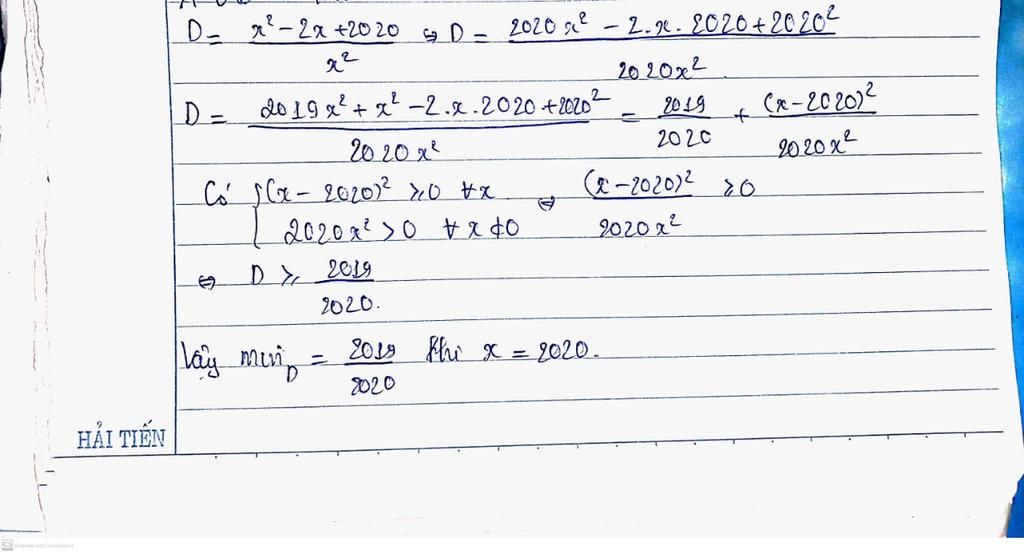 D = x² - 2x + 2020 / x² ⇔ D = 2020x² - 2.x.2020 + 2020² / 2020x²
D = 2019x² + x² - 2.x.2020 + 2020² / 2020x² = 2019/2020 + (x - 2020)² / 2020x²
Có { (x - 2020)² ≥ 0 ∀x ⇔ (x - 2020)² / 2020x² ≥ 0
2020x² > 0 ∀x ≠ 0
⇔ D ≥ 2019/2020.
Vậy min D = 2019/2020 khi x = 2020.
HẢI TIẾN
CS Scanned with CamScanner